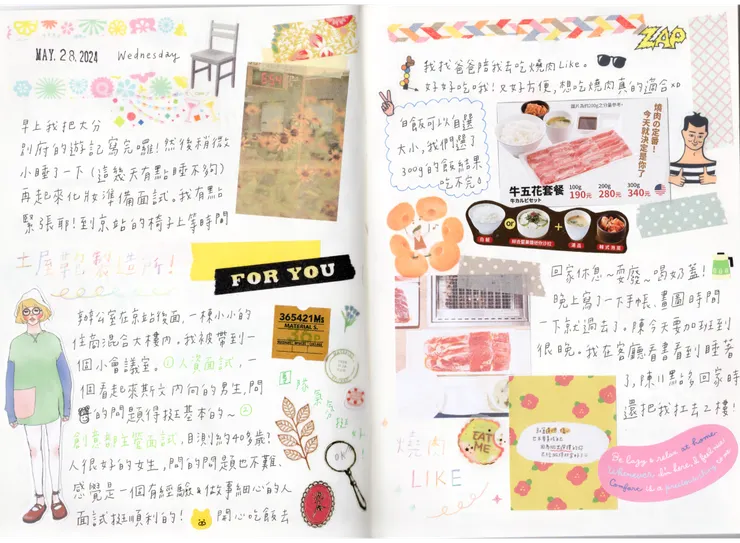 MAY. 28. 2024 Wednesday
早上我把大分
別府的遊記寫完囉！然後稍微
小睡了一下（這幾天有點睡不夠）
再起來化妝準備面試。我有點
緊張耶！到京站的椅子上等時間
土屋鞄製造所！
FOR YOU
辦公室在京站後面，一棟小小的
住商混合大樓內。我被帶到一
個小會議室。①人資面試，一
個看起來斯文內向的男生，問
的問題得挺基本的～②
創意部主管面試，目測約40多歲？
人很好的女生，問的問題也不難、
感覺是一個有經驗&做事細心的人
面試挺順利的！開心吃飯去
365421Ms
MATERIAL S.
團隊氣氛挺
OK
ZAP
我找爸爸陪我去吃燒肉Like。
好好吃哦！又好方便，想吃燒肉真的適合XD
白飯可以自選
大小，我們選了
300g的飯結果
吃不完
燒肉の定番！
今天就決定是你了
牛五花套餐
牛カルビセット
100g 200g 300g
190元 280元 340元
白飯 or + 湯品 韓式泡菜
回家休息～耍廢～喝奶蓋！
晚上寫了一下手帳、畫圖時間
一下就過去了。陳今天要加班到
很晚。我在客廳看書看到睡著
了，陳11點多回家時
還把我扛去2樓！
燒肉
LIKE
EAT
ME
Be lazy & relax at home.